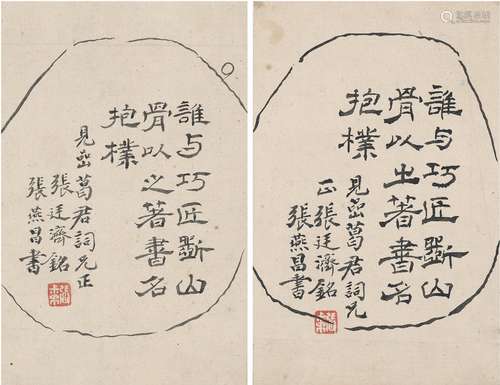 誰与巧匠斲山
骨以之著書名
抱樸
見嵒葛君詞兄
正張廷濟銘
張燕昌書
誰与巧匠斲山
骨以之著書名
抱樸
見嵒葛君詞兄正
張廷濟銘
張燕昌書